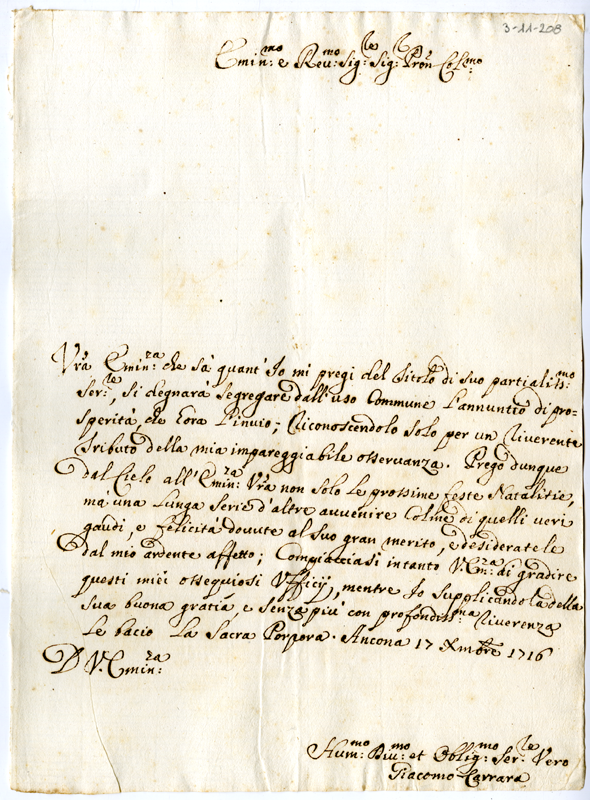 3-11-208
Emin:mo e Reu:mo Sig:le Sig:e Pron Col:mo
Vrã Emin:za che sà quant'Io mi pregi del titolo di suo partialis:mo
Ser:le, si degnarà segregare dall'uso Commune l'annuntio di pro-
sperità, che Lora l'inuio; Riconoscendolo solo per un Riuerente
tributo della mia impareggiabile osseruanza. Prego dunque
dal Cielo all'Emin:za Vrã non solo le prossime feste Natalitie,
mà una lunga serie d'altre auuenire Colme di quelli ueri
gaudi, e felicità douute al suo gran merito, e desiderate le
dal mio ardente affetto; Compiacciasi intanto V. Em:za di gradire
questi miei ossequiosi Vfficij, mentre Io supplicandola della
sua buona gratia, e senza più con profondiss:ma Riuerenza
le bacio la Sacra Porpora. Ancona 17 Xmbre 1716
D V. Emin:za
Hum:mo Diu:mo et Oblig:mo Ser:le Vero
Giacomo Carrara